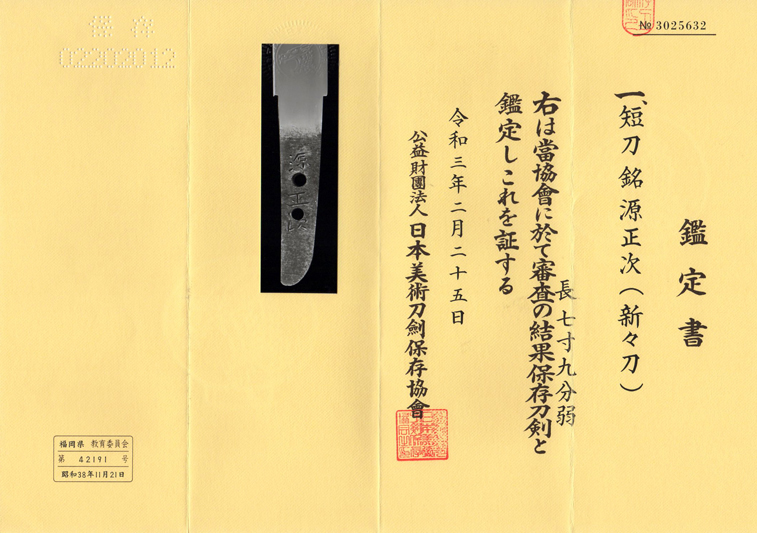 № 3025632
鑑定書
一、短刀 銘 源正次(新々刀)
長七寸九分弱
右は當協會に於て審査の結果保存刀剣と
鑑定しこれを証する
令和三年二月二十五日
公益財團法人日本美術刀劍保存協會
源正次
保存
02202012
福岡県 教育委員会
第 42191 号
昭和38年11月21日